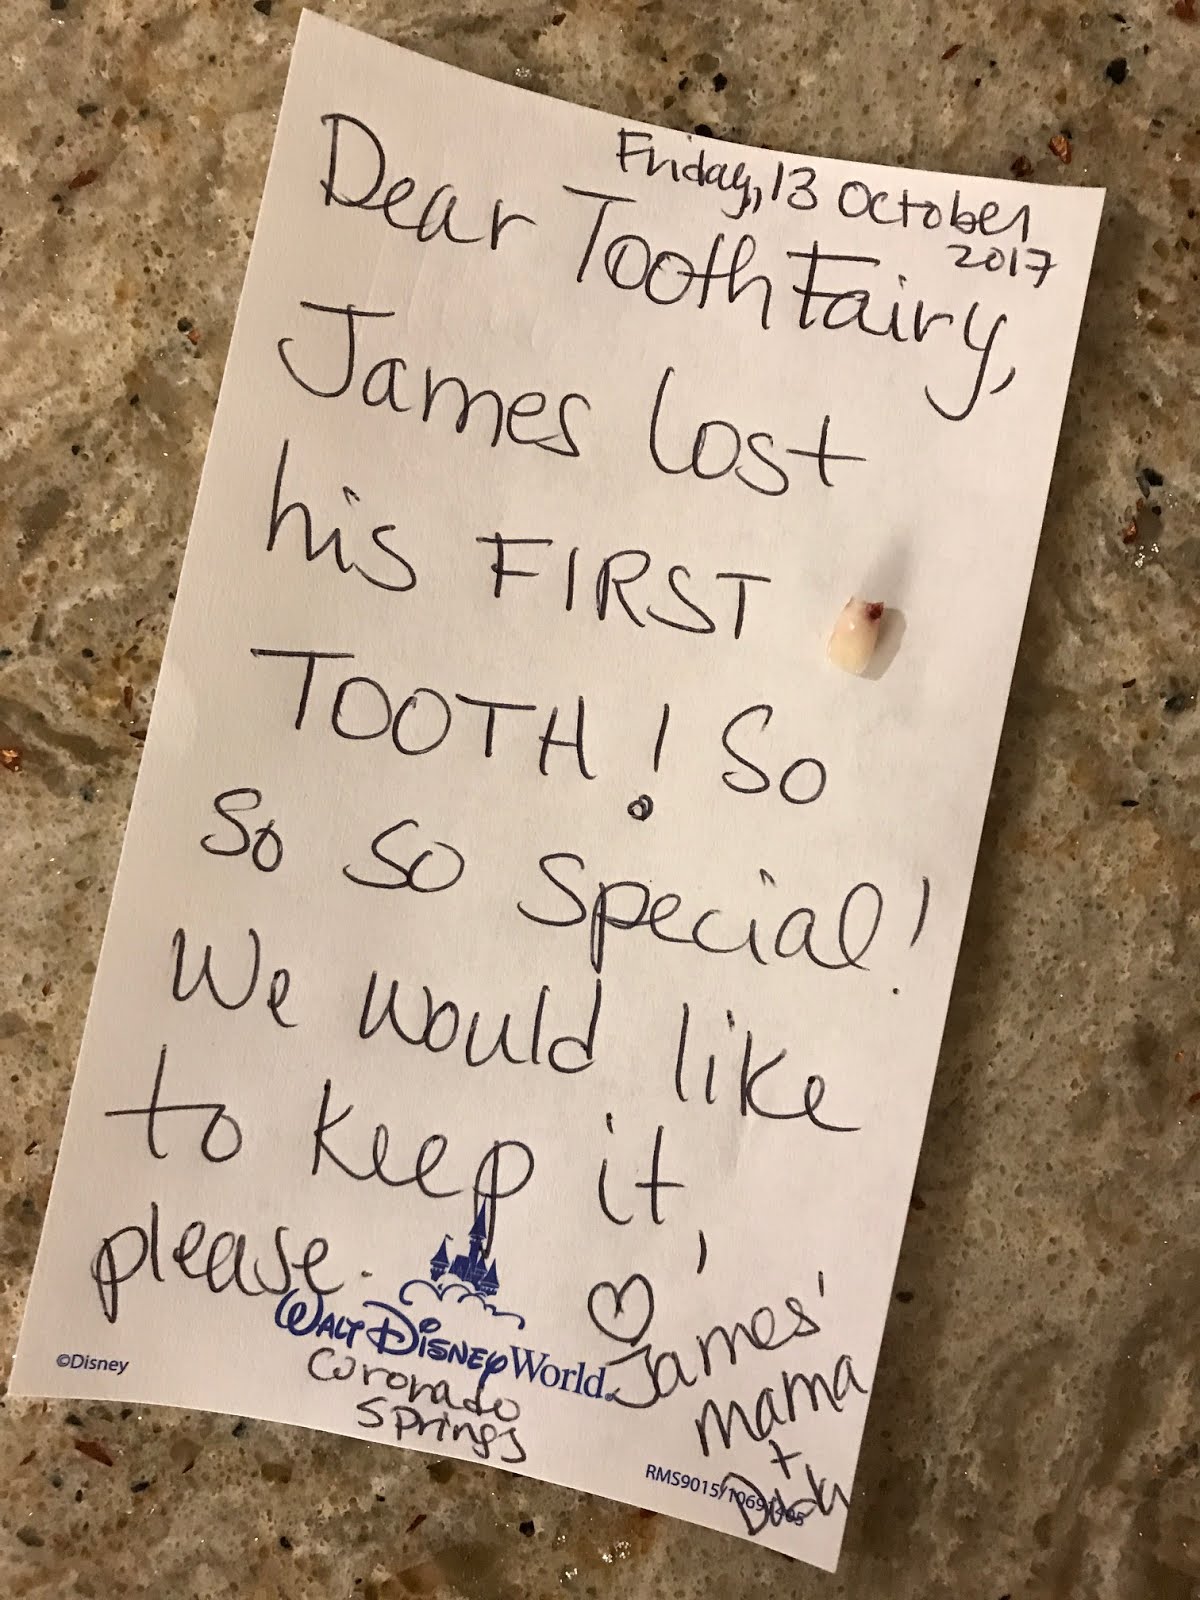 Friday, 13 October
2017
Dear Tooth Fairy,
James lost
his FIRST
TOOTH! So
So so special!
We would like
to keep it,
please.
♡
James'
mama
+
WALT DISNEY World.
Coronado
Springs
©Disney